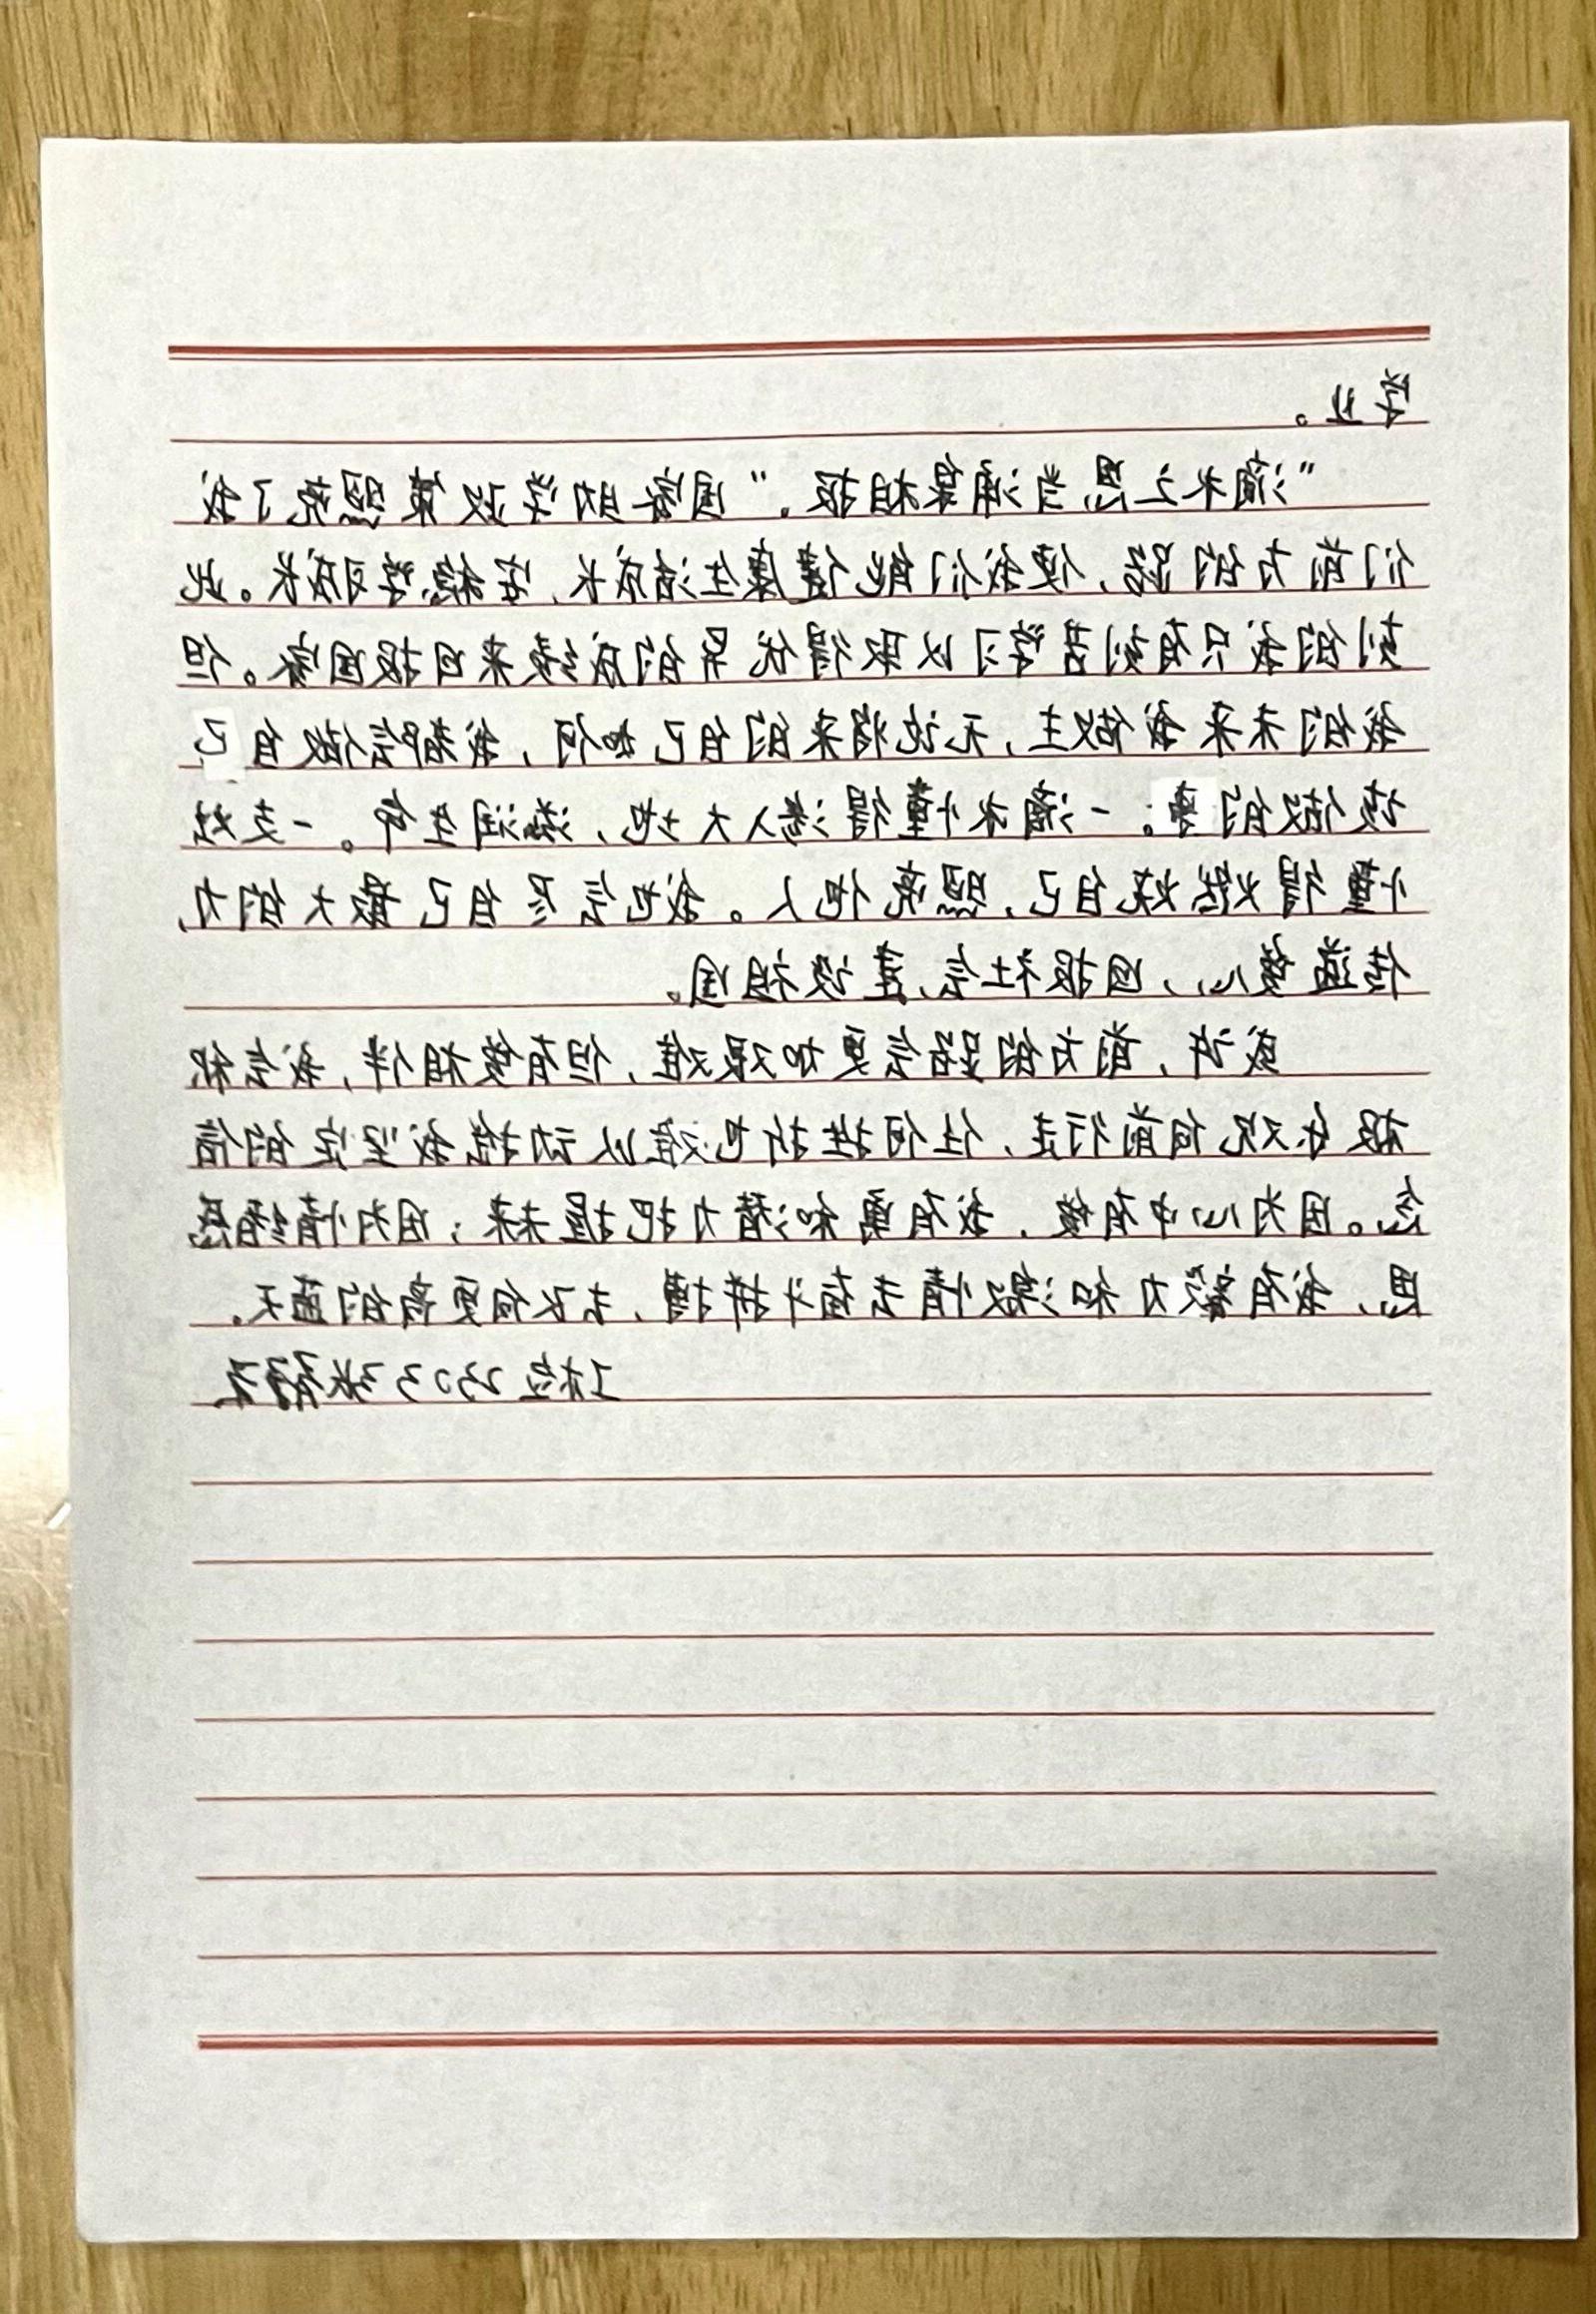 学业。
“滴水之恩,当涌泉相报。”国家助学政策照亮了我
们前方的路,使我们能健康生活成长,安稳学习成长。此
刻的我只有刻苦学习以取得优异的成绩来回报国家。但
我的未来我做主,无论将来的自己如何,我都会做自己
该做的事。一滴水懂得渗入大地,滋润生命。一支烛
懂得燃烧自己,照亮他人。我也会尽自己最大的力,
传递爱心,回报社会,建设祖国。
或许,前方的路会更加艰难,但有爱相伴,我会积
极乐观向前行走,任何挫折也难以动摇我坚定的信
念。因为心中有爱,我有勇和潜力把握未来;因为情绪感
恩,我有毅力和激情去奋斗拼搏,去飞向更高的蓝天。
2303张